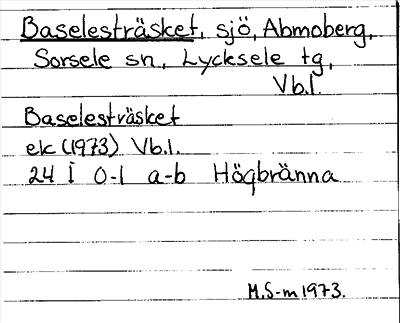 Baselesträsket, sjö, Abmoberg,
Sorsele sn, Lycksele tg,
Vb.l.
Baselesträsket
ek (1973) Vb.l.
24 I 0-1 a-b Högbränna
M.S-m 1973.